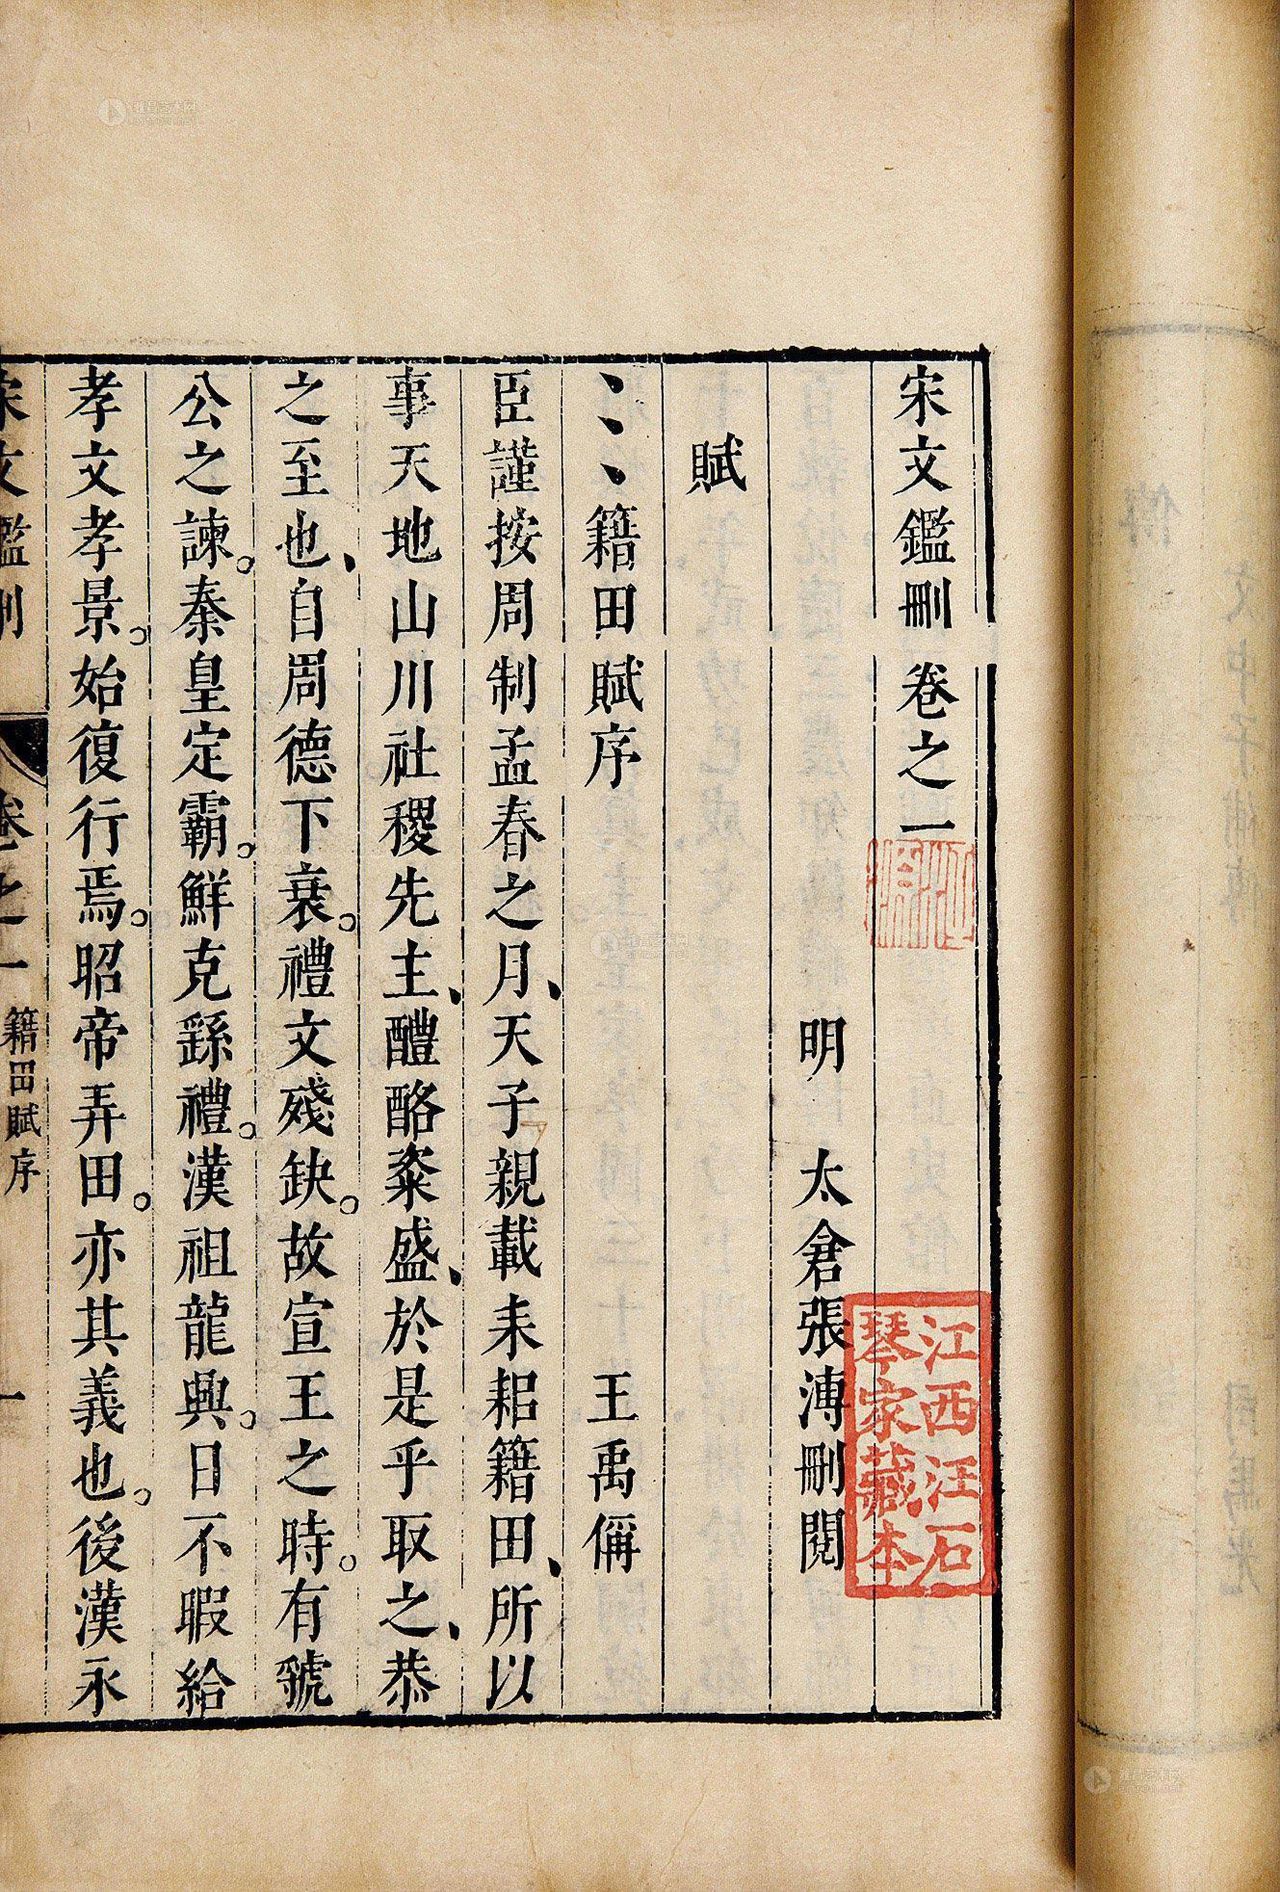 宋文鑑刪卷之一
明 太倉張溥刪閱
賦
、、籍田賦序 王禹偁
臣謹按周制孟春之月、天子親載耒耜籍田、所以
事天地山川社稷先主、醴酪粢盛、於是乎取之、恭
之至也、自周德下衰。禮文殘缺。故宣王之時。有虢
公之諫。秦皇定霸。鮮克繇禮。漢祖龍興。日不暇給
孝文孝景。始復行焉。昭帝弄田。亦其義也。後漢永
宋文鑑刪 卷之一 籍田賦序 一
江西汪石
琴家藏本